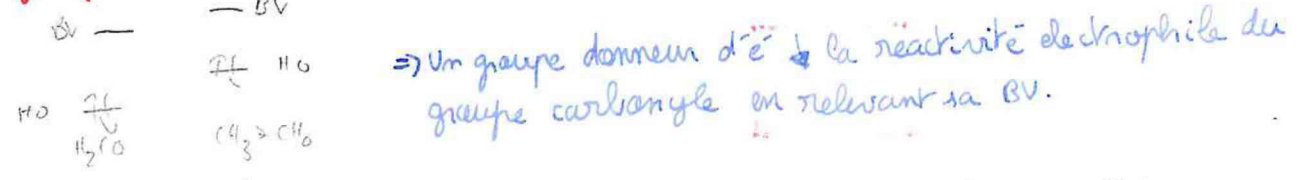 BV — — BV
HO
HO
H₂CO CH₃-CHO
=> Un groupe donneur d'é ↓ la réactivité électrophile du
groupe carbonyle en relevant sa BV.